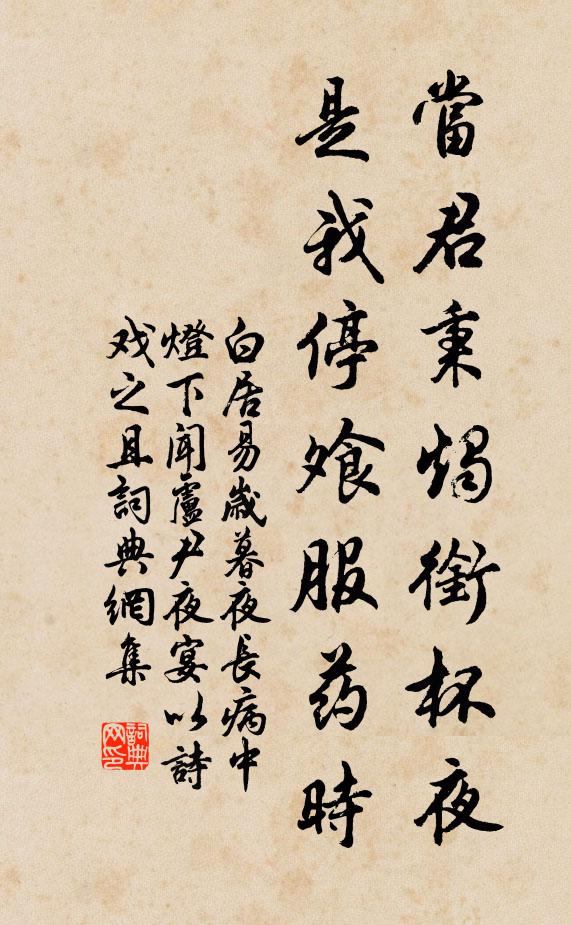 當君秉燭銜杯夜
是我停飧服药時
白居易歲暮夜長病中
燈下聞盧尹夜宴以詩
戏之且詞典網集
詞典
网印